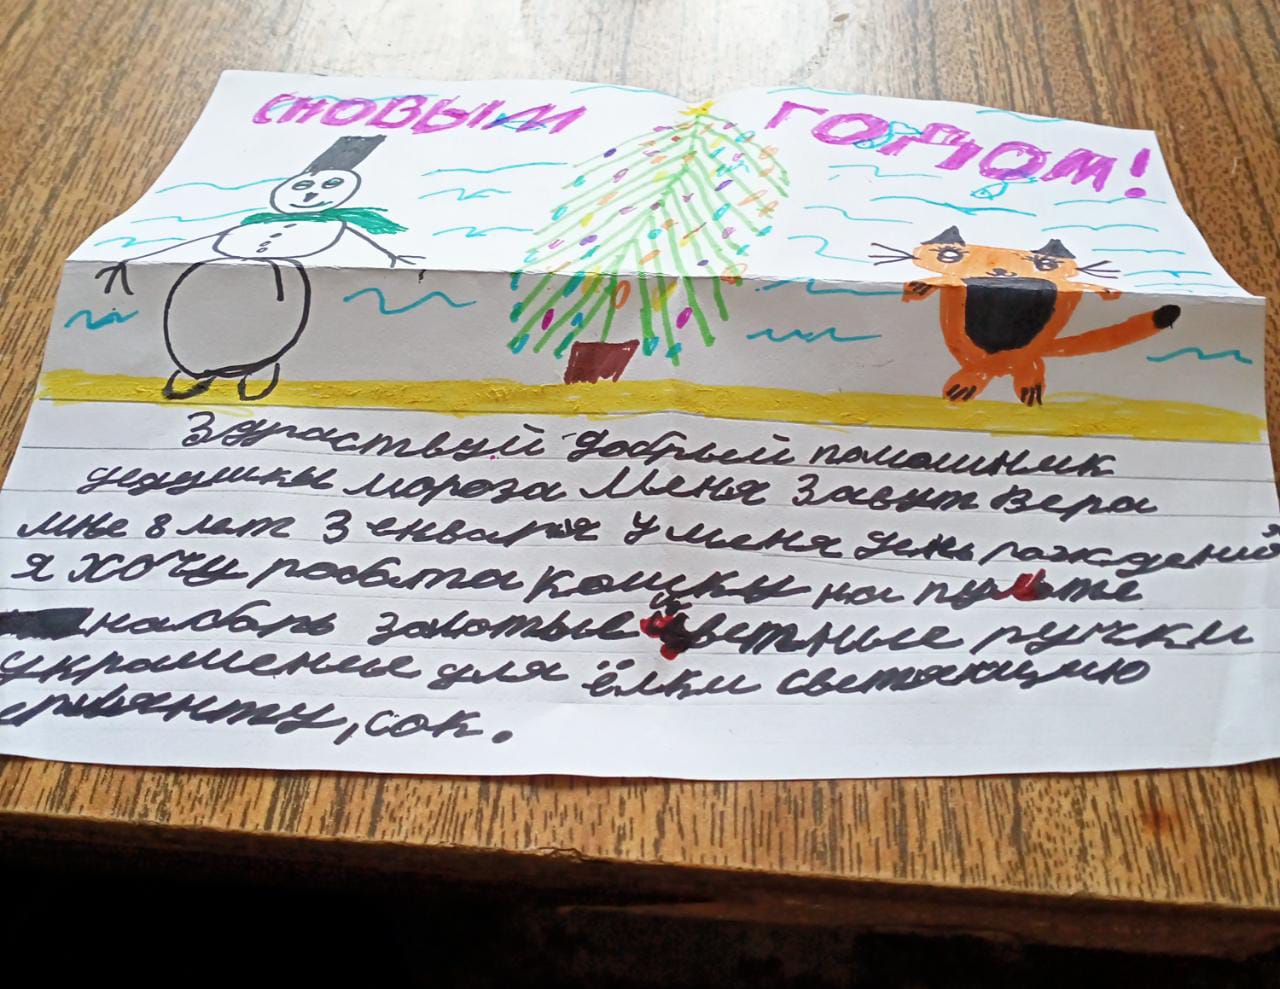 С НОВЫМ ГОДОМ!
Здраствуй добрый помошник
дедушки мороза Меня завут Вера
мне 8 лет 3 енваря у меня день рождения
я хочу робота кошку на пульте
набарь золотые цветные ручки
украшение для ёлки светящию
герлянту, сок.